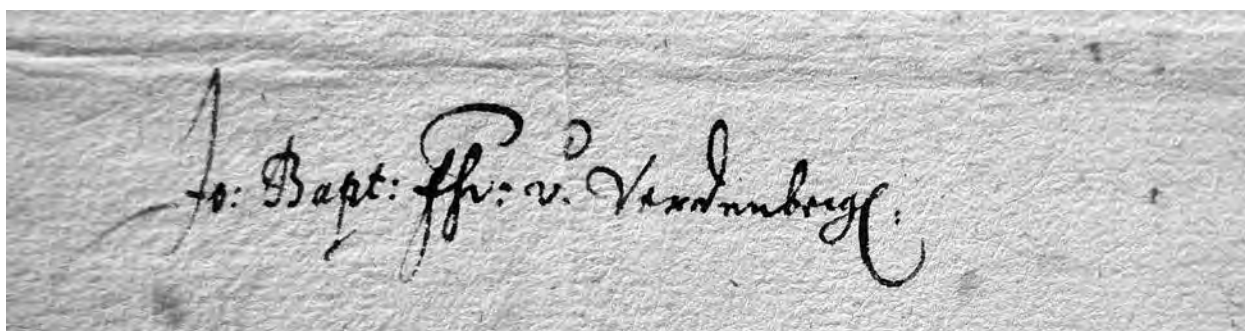 Jo: Bapt: Fhr: v. Verdenberg.